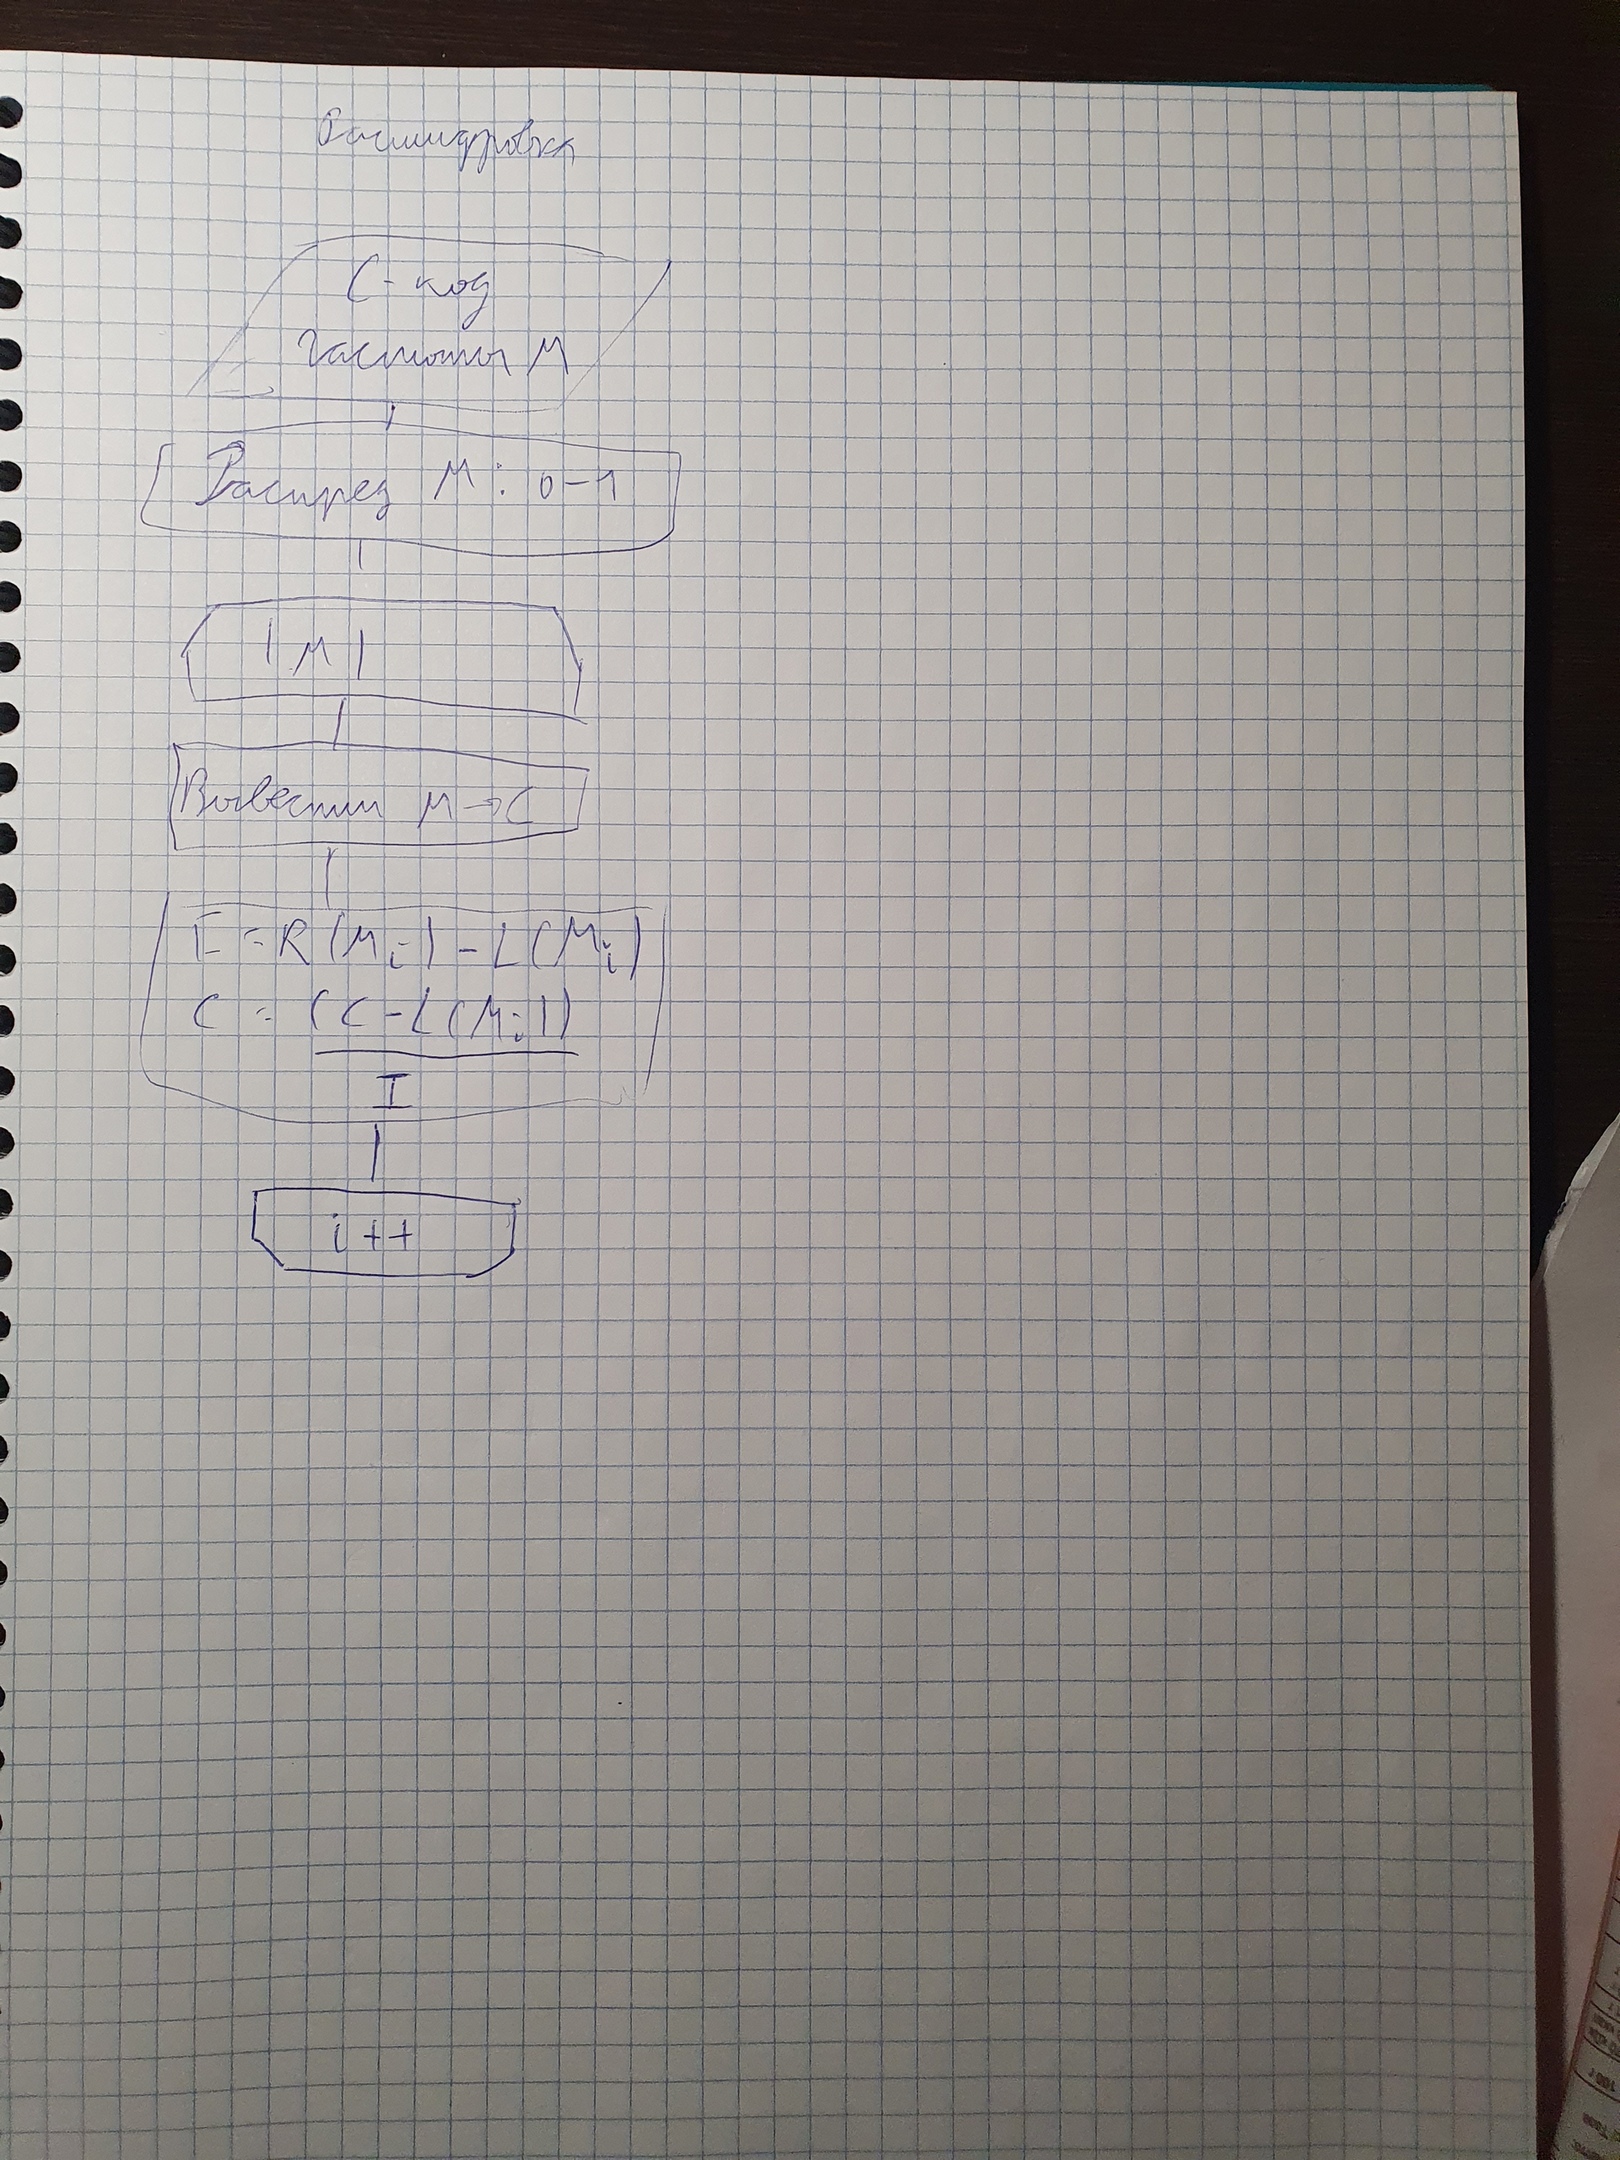 Расшифровка
C - код
Частоты M
Распред M: 0-1
|M|
Вывести M → C
I = R(Mi) - L(Mi)
C = (C - L(Mi))
I
i++